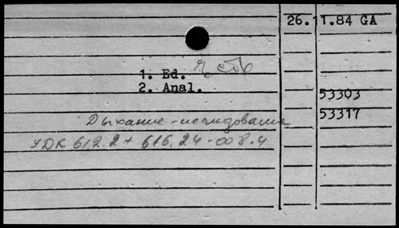 26.11.84 GA
1. Ed.
2. Anal.
53303
53317
Дыхание-исследование
УДК 612.2+616.24-008.4